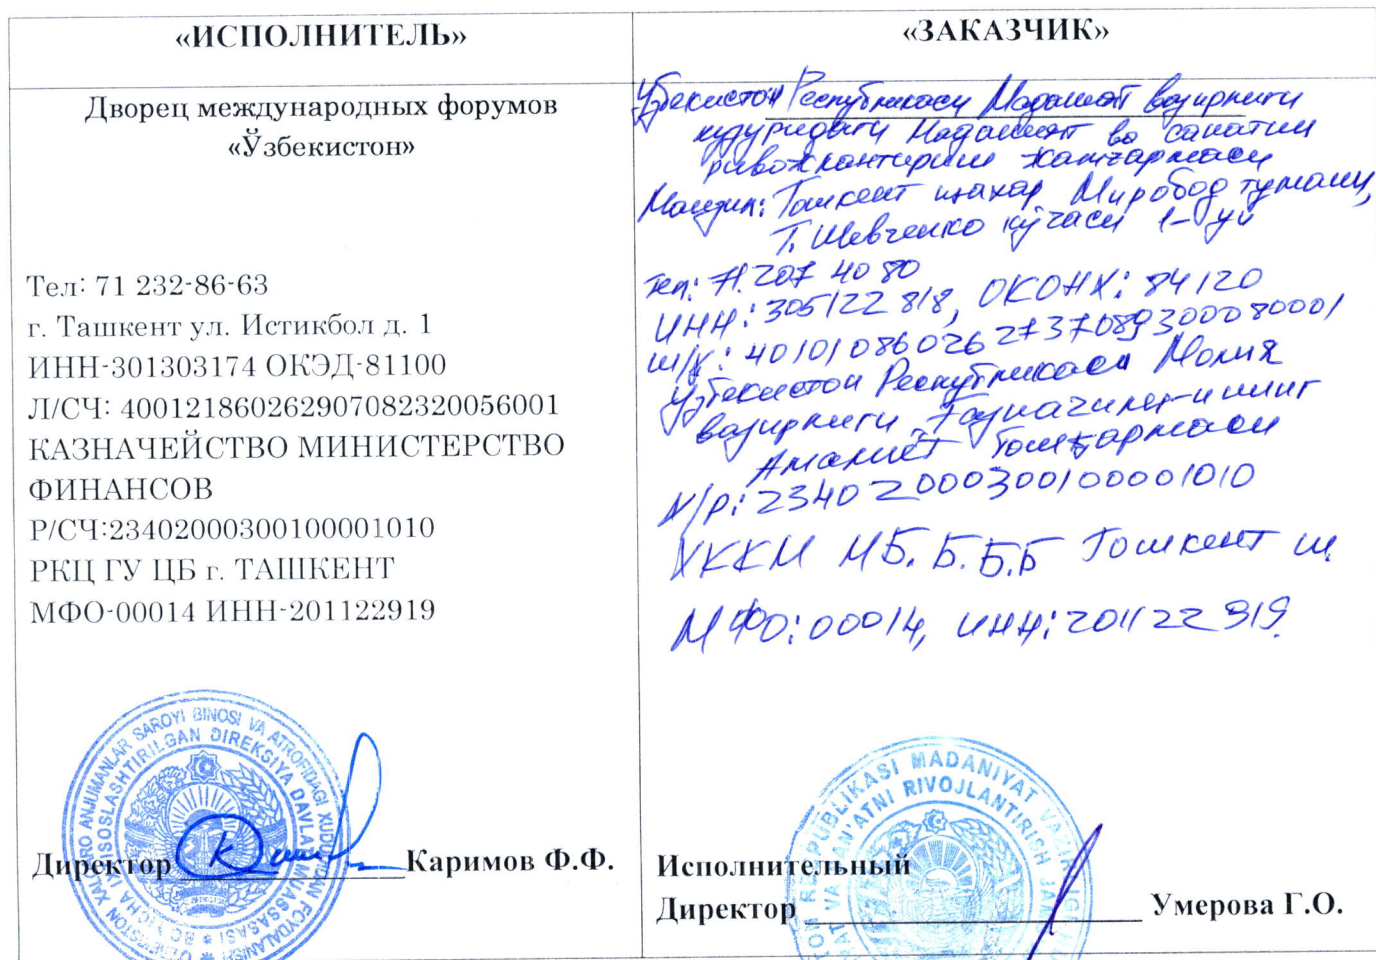 «ИСПОЛНИТЕЛЬ»
Дворец международных форумов
«Ўзбекистон»
Тел: 71 232-86-63
г. Ташкент ул. Истикбол д. 1
ИНН-301303174 ОКЭД-81100
Л/СЧ: 400121860262907082320056001
КАЗНАЧЕЙСТВО МИНИСТЕРСТВО
ФИНАНСОВ
Р/СЧ:23402000300100001010
РКЦ ГУ ЦБ г. ТАШКЕНТ
МФО-00014 ИНН-201122919
Директор Каримов Ф.Ф.
«ЗАКАЗЧИК»
Ўзбекистон Республикаси Маданият вазирлиги
ҳузуридаги Маданият ва санъатни
ривожлантириш жамғармаси
Манзил: Тошкент шаҳар Миробод тумани,
Т. Шевченко кўчаси 1-уй
тел: 71. 207 40 80
ИНН: 305122 818, ОКОНХ: 84120
ш/х: 401010860262737089300080001
Ўзбекистон Республикаси Молия
вазирлиги Ғазначилигининг
Амалиёт Бошқармаси
Х/р: 23402000300100001010
ХККМ МБ. Б.Б.Б Тошкент ш
МФО: 00014, ИНН: 201122919.
Исполнительный
Директор Умерова Г.О.
SAROYI BINOSI VA ATROFIDAGI
DIREKSIYA
REPUBLIKASI MADANIYAT
RIVOJLANTIRISH